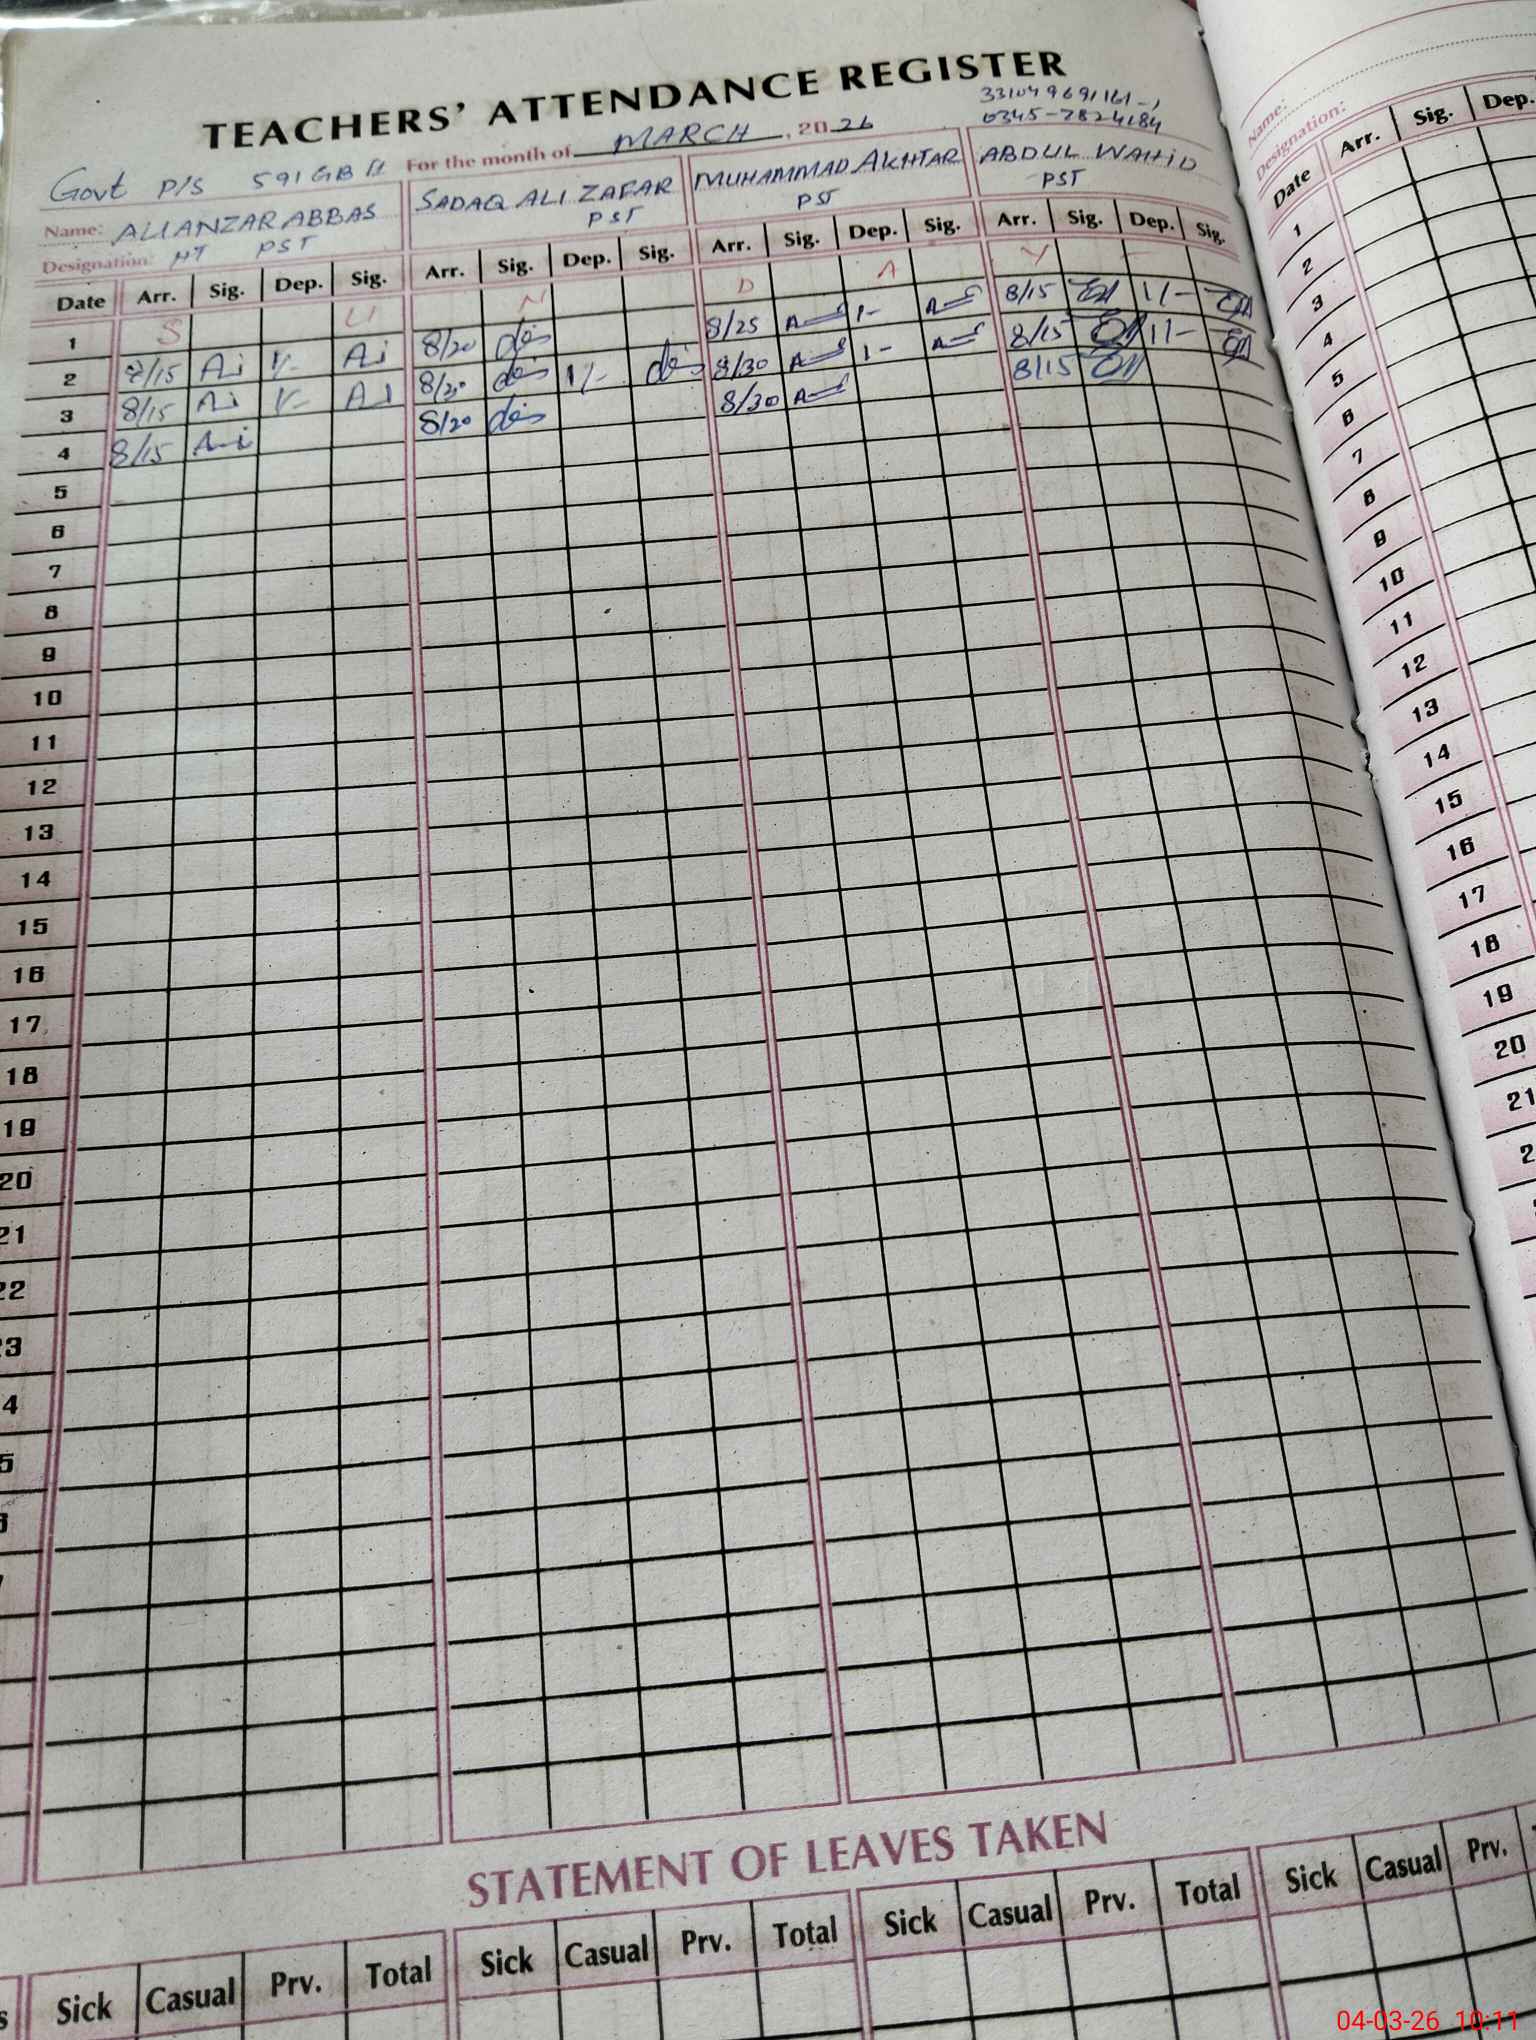 TEACHERS' ATTENDANCE REGISTER
331049691161-1
0345-7824184
Govt P/S 591 GB For the month of MARCH, 2026
Name: ALI ANZAR ABBAS SADAQ ALI ZAFAR MUHAMMAD AKHTAR ABDUL WAHID
Designation: HT PST PST PST PST
Date Arr. Sig. Dep. Sig. Arr. Sig. Dep. Sig. Arr. Sig. Dep. Sig. Arr. Sig. Dep. Sig.
1 S U N D A Y
2 8/15 1/- 8/20 8/25 1- 8/15 1/-
3 8/15 1/- 8/30 1/- 8/30 1- 8/15 1/-
4 8/15 8/20 8/30 8/15
5
6
7
8
9
10
11
12
13
14
15
16
17
18
19
20
21
22
23
4
5
STATEMENT OF LEAVES TAKEN
Sick Casual Prv. Total Sick Casual Prv. Total Sick Casual Prv. Total Sick Casual Prv.
Name:
Designation:
Date Arr. Sig. Dep.
1
2
3
4
5
6
7
8
9
10
11
12
13
14
15
16
17
18
19
20
21
2
04-03-26 10:11